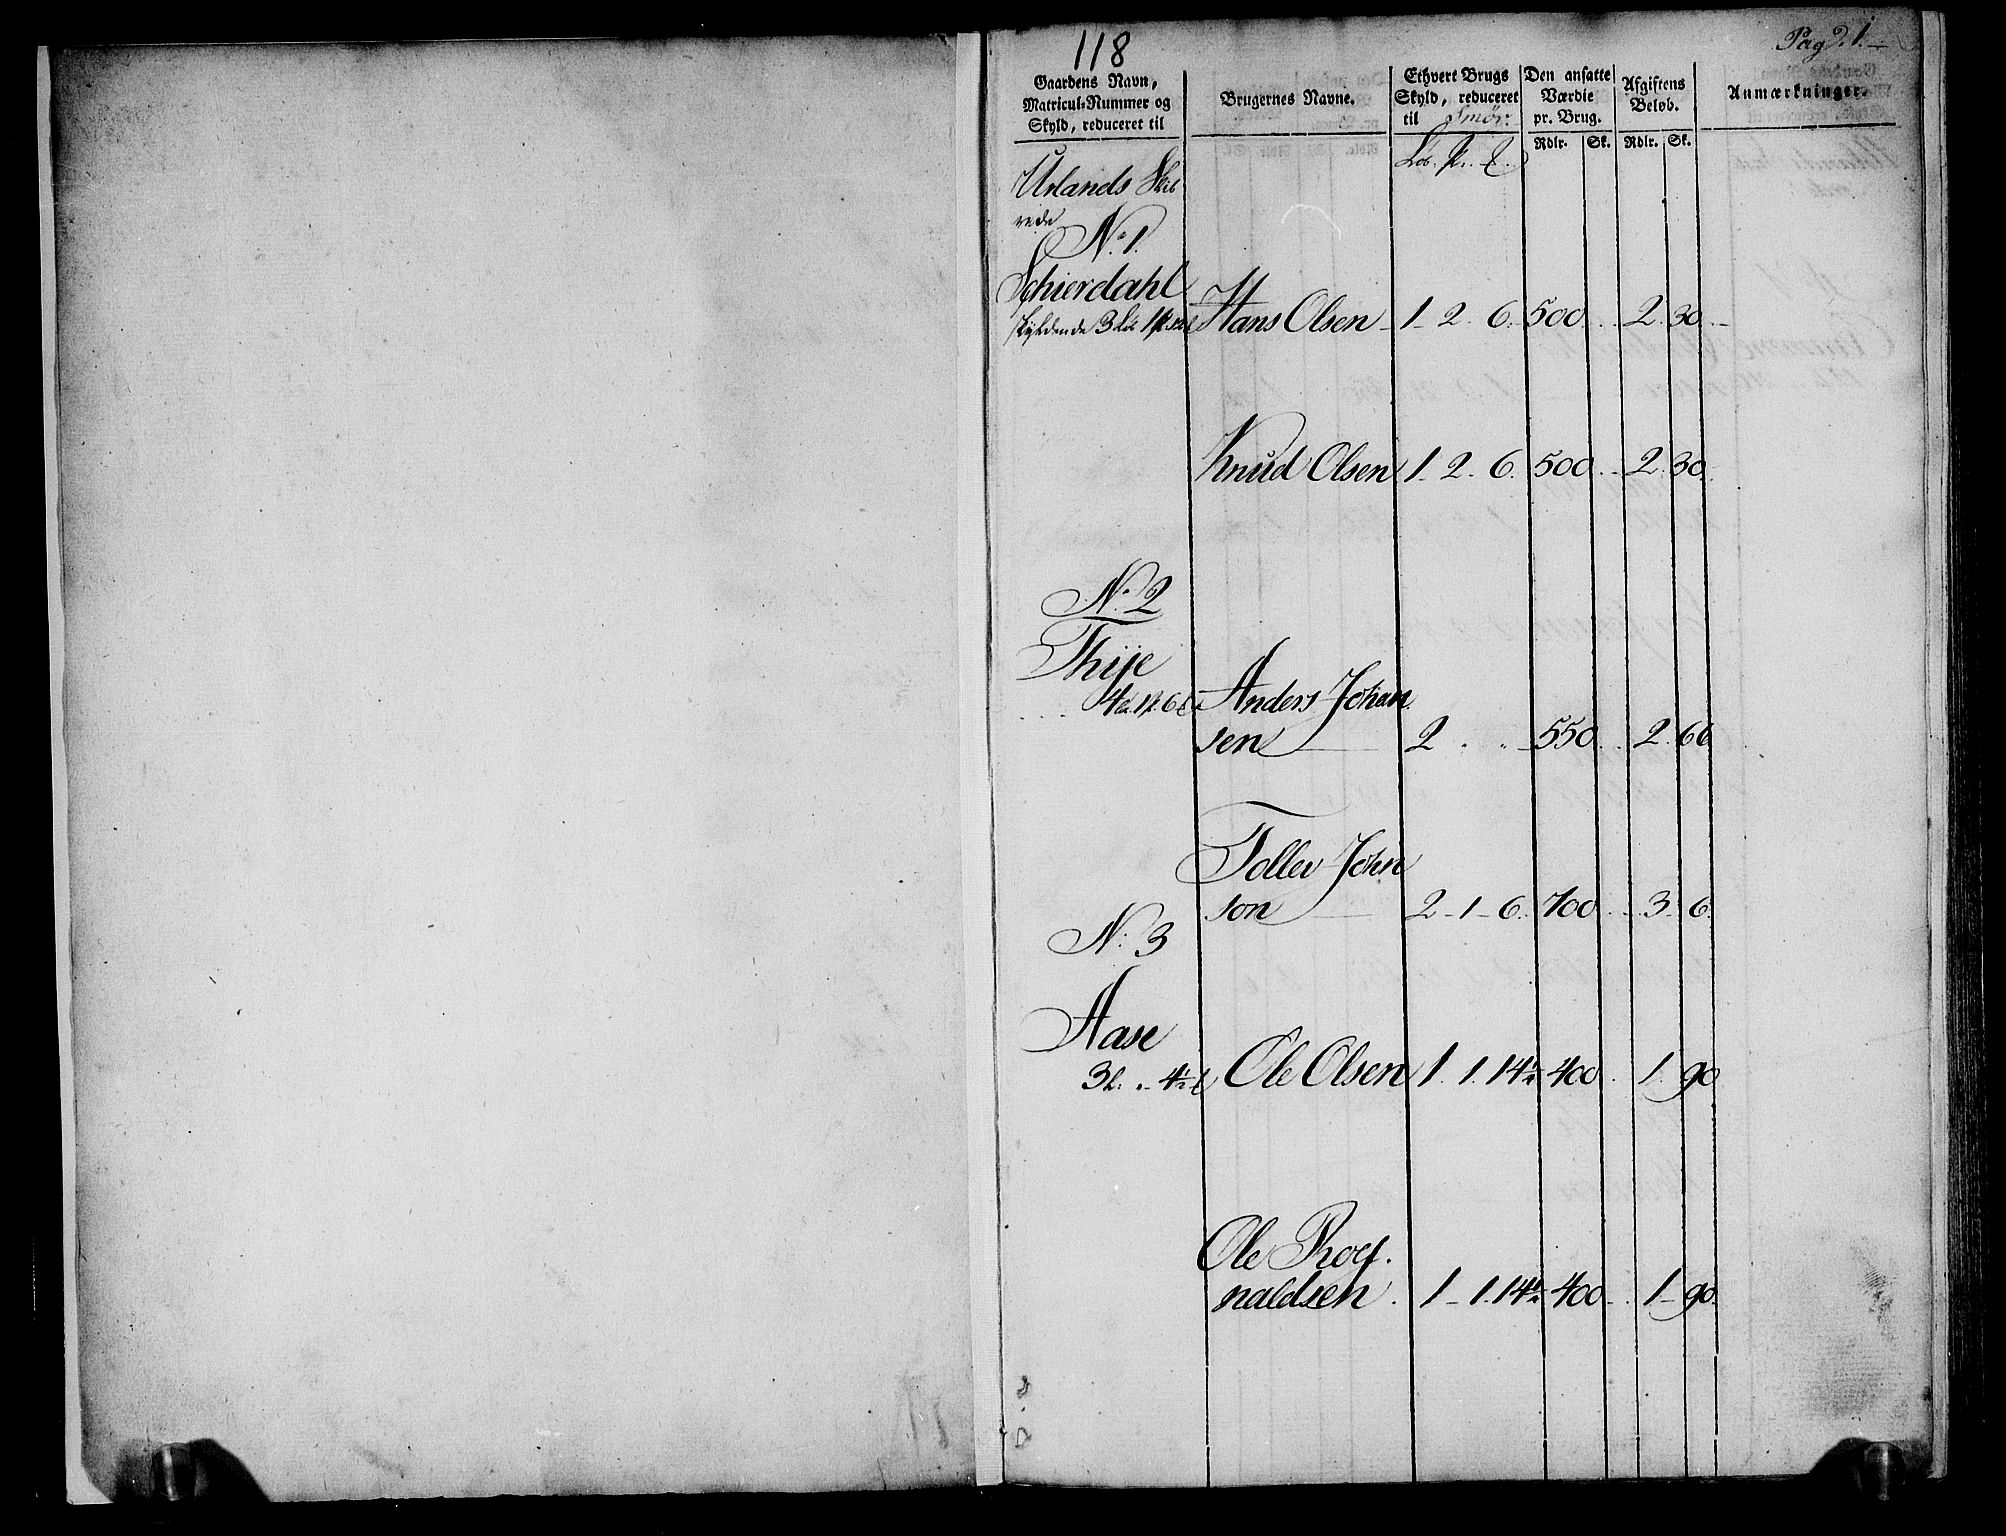 118
Pag 2.1.
Gaardens Navn, Matricul-Nummer og Skyld, reduceret til
Brugernes Navne.
Ethvert Brugs Skyld, reduceret til Smör:
Den ansatte Værdie pr. Brug.
Afgiftens Beløb.
Anmærkninger.
Rdlr. Sk. Rdlr. Sk.
Urlands Skib
rede
No. 1.
Schierdahl
skyldende 3 Lób 1
Hans Olsen 1 2 6 500 2 30
Knud Olsen 1 2 6 500 2 30
No. 2
Thije
Anders Johan
sen 2 " " 550 2 66
Tollev John
son 2 1 6 700 3 6
No. 3
Aase
3 L. " 4½
Ole Olsen 1 1 14½ 400 1 90
Ole Rog
naldsen 1 1 14½ 400 1 90